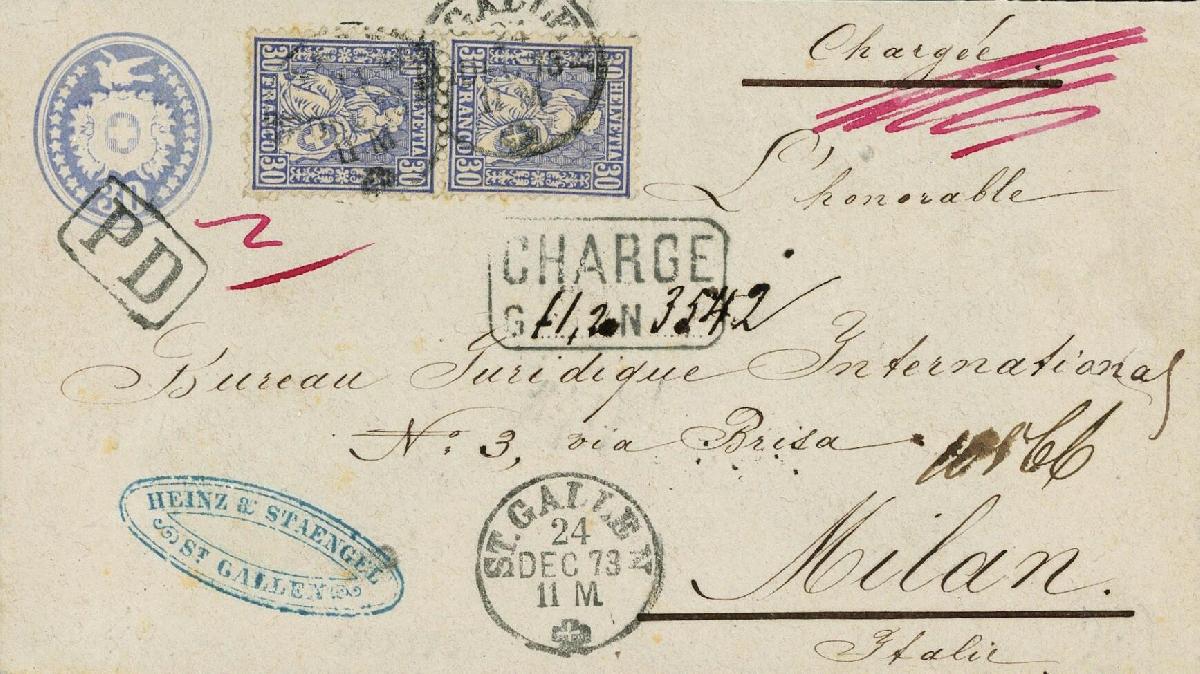 ST. GALLEN
24
30 HELVETIA 30
FRANCO
30 HELVETIA 30
FRANCO
11 M
Chargée
L'honorable
PD
CHARGÉ
3542
Bureau Juridique International
No. 3, via Brisa
Milan.
Italie
HEINZ & STAENGEL
ST GALLEN
ST. GALLEN
24
DEC 73
11 M.